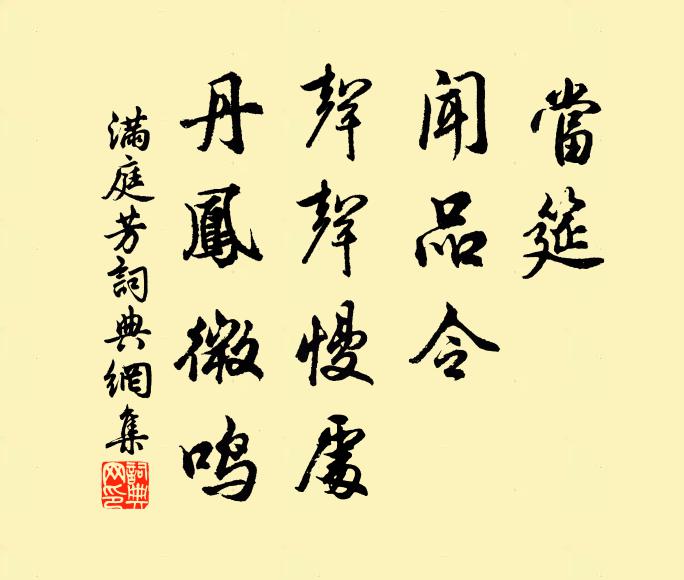 當筵
聞品令
聲聲慢處
丹鳳微鳴
滿庭芳詞典網集
詞典網印